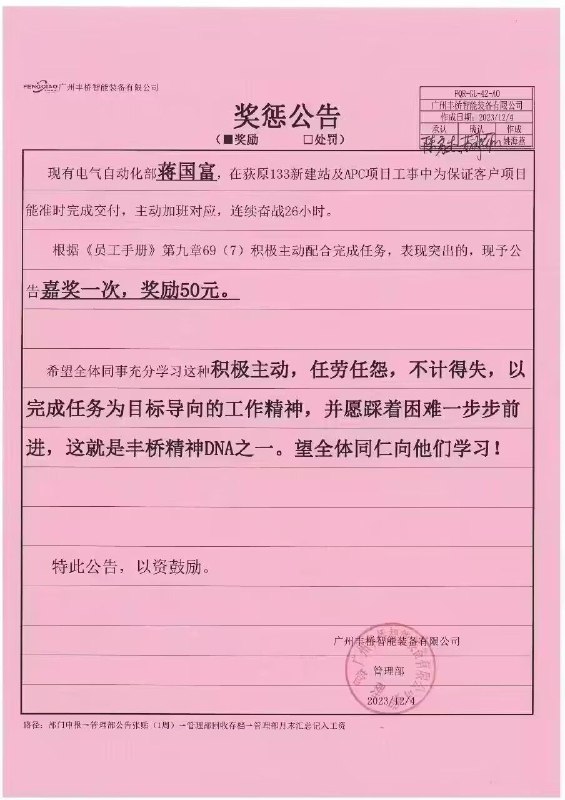 FENGQIAO 广州丰桥智能装备有限公司
FQR-GL-42-A0
广州丰桥智能装备有限公司
作成日期：2023/12/4
承认 确认 作成
奖惩公告
（■奖励 □处罚）
现有电气自动化部蒋国富，在荻原133新建站及APC项目工事中为保证客户项目
能准时完成交付，主动加班对应，连续奋战26小时。
根据《员工手册》第九章69（7）积极主动配合完成任务，表现突出的，现予公
告嘉奖一次，奖励50元。
希望全体同事充分学习这种积极主动，任劳任怨，不计得失，以
完成任务为目标导向的工作精神，并愿踩着困难一步步前
进，这就是丰桥精神DNA之一。望全体同仁向他们学习！
特此公告，以资鼓励。
广州丰桥智能装备有限公司
管理部
2023/12/4
路径：部门申报→管理部公告张贴（1周）→管理部回收存档→管理部月末汇总记入工资